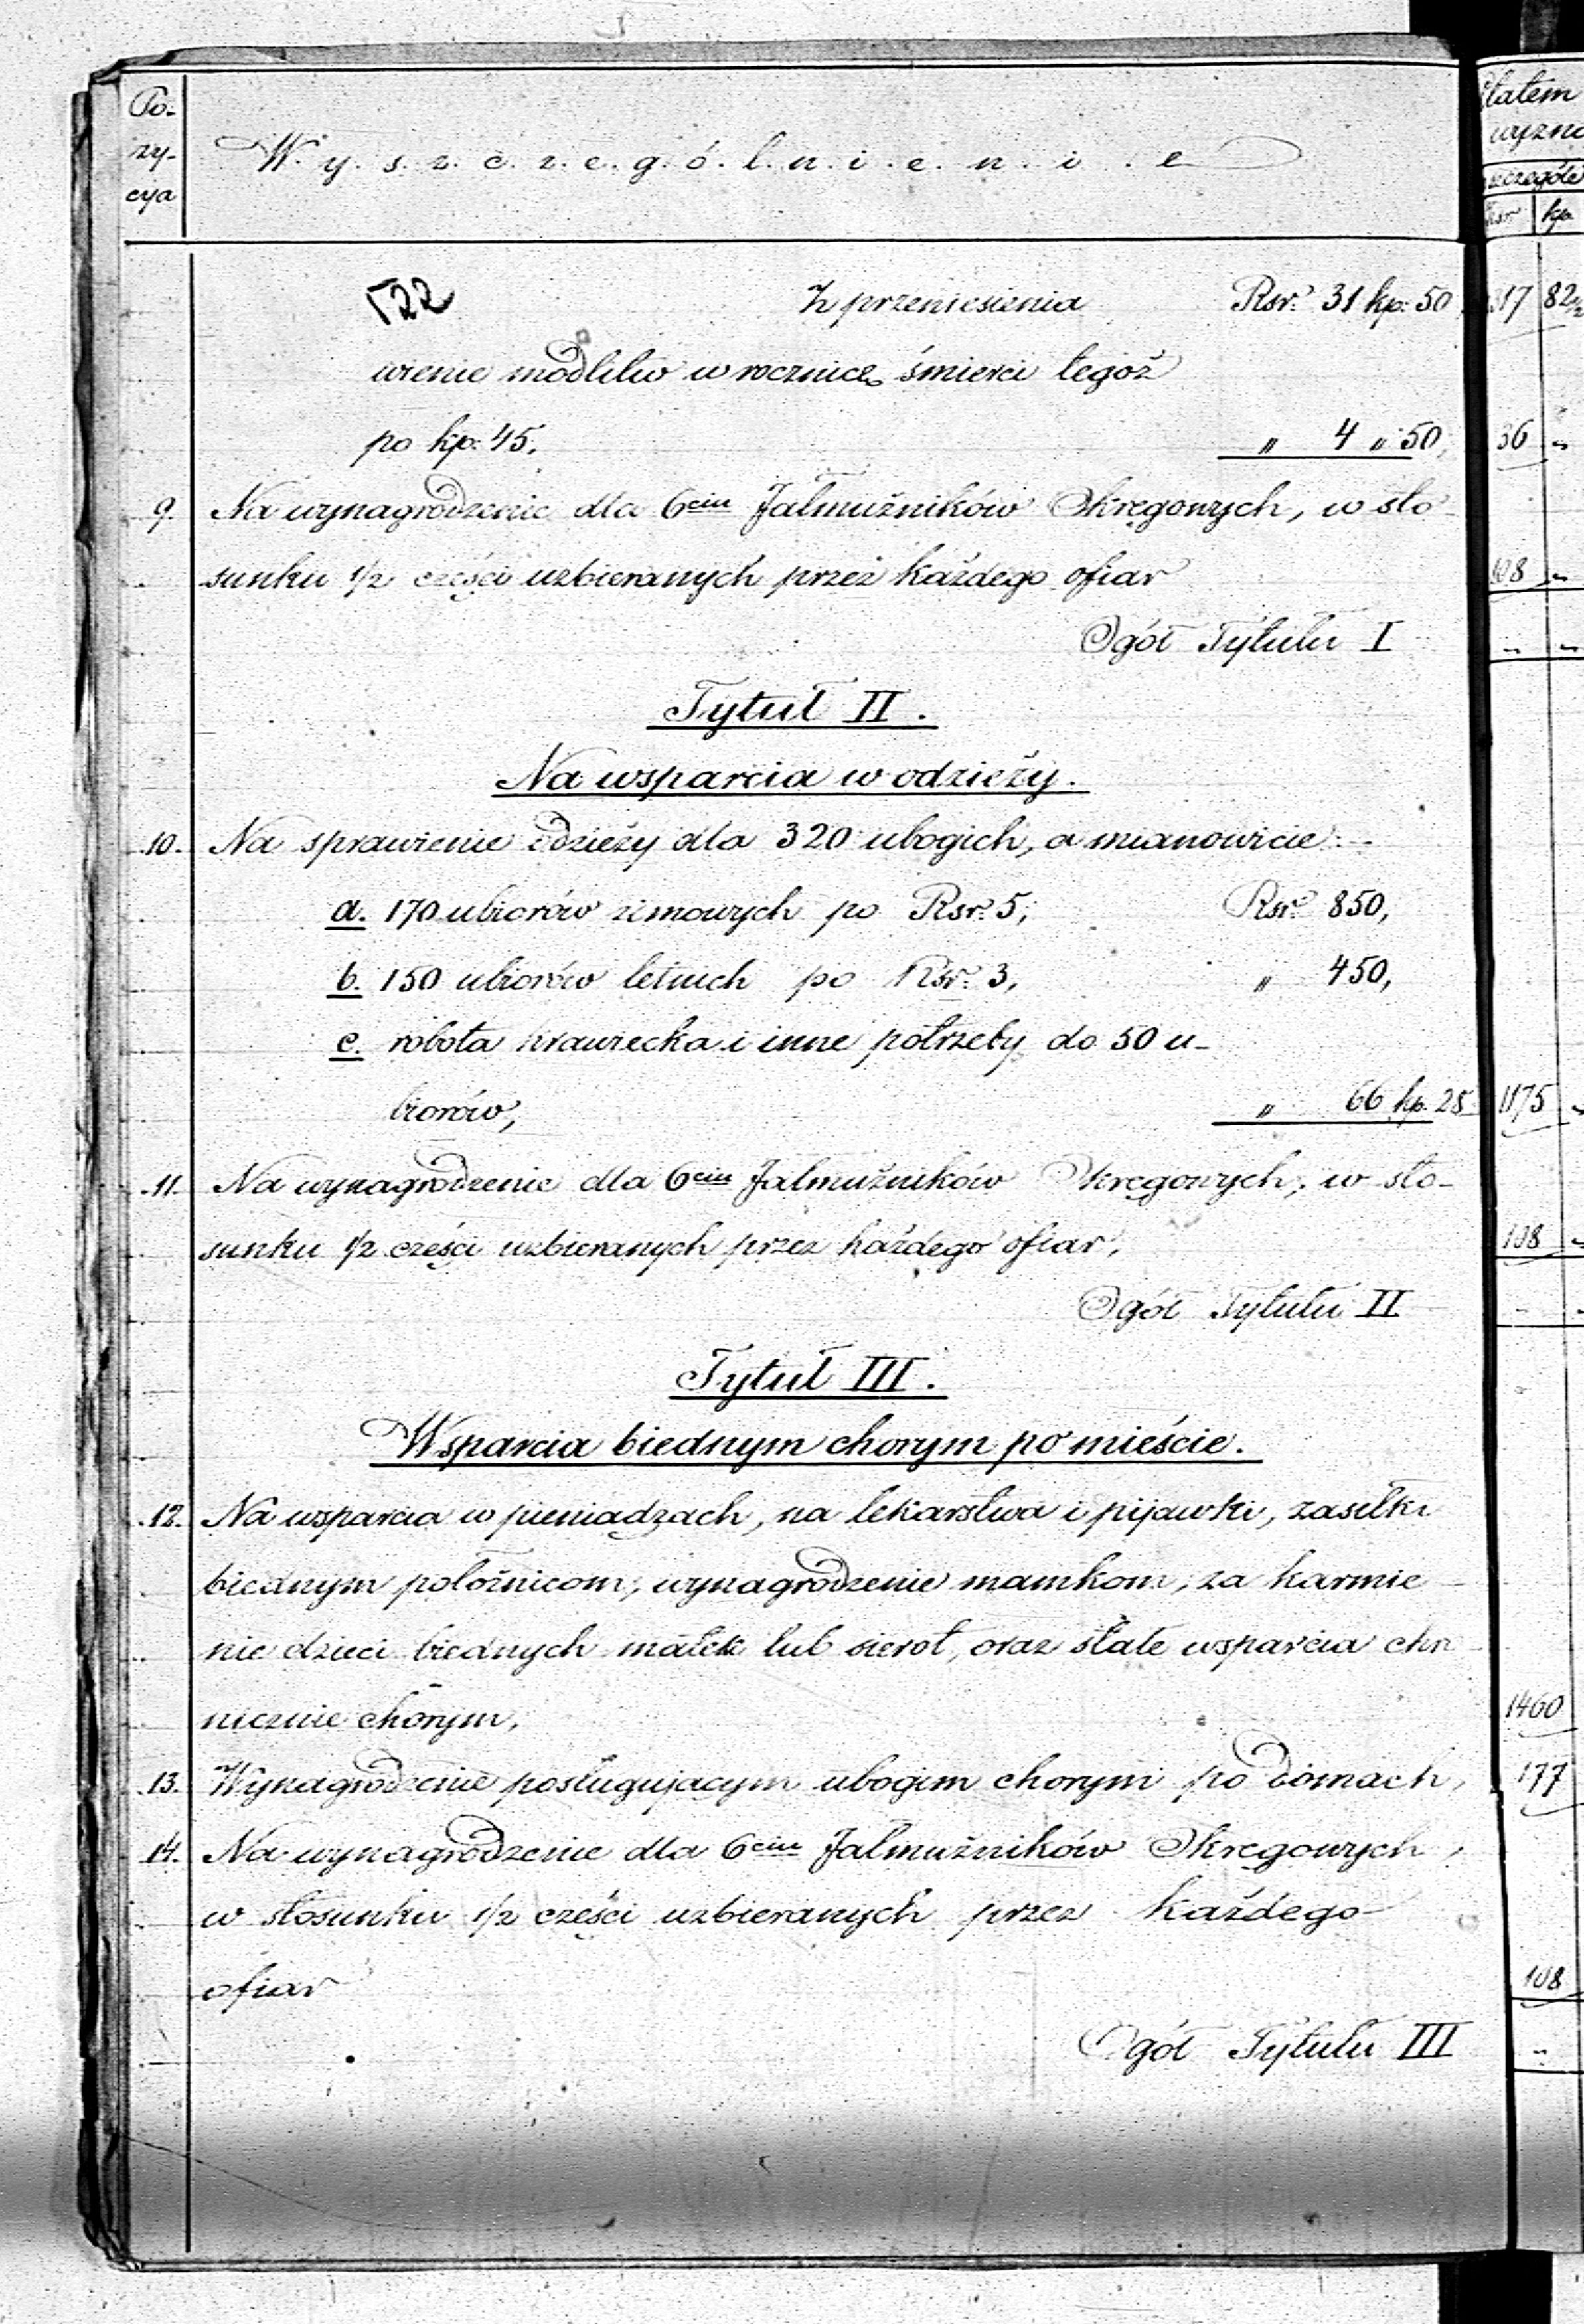 Po-
zy-
cya
W. y. s. z. c. z. e. g. ó. l. n. i. e. n. i. e
Etatem
wyzna
szczególe
Rsr kp.
122 Z przeniesienia Rsr. 31 kp. 50 317 82½
wienie modlitw w rocznicę śmierci tegoż
po kp. 45. " 4 " 50, 36 "
9. Na wynagrodzenie dla 6ciu Jałmużników Okręgowych, w sto-
sunku 1/2 części uzbieranych przez każdego ofiar 108 "
Ogół Tytułu I " "
Tytuł II.
Na wsparcia w odzieży.
10. Na sprawienie odzieży dla 320 ubogich, a mianowicie:
a. 170 ubiorów zimowych po Rsr. 5, Rsr. 850,
b. 150 ubiorów letnich po Rsr. 3, " 450,
c. robota krawiecka i inne potrzeby do 50 u-
biorów, " 66 kp. 25 1175 "
11. Na wynagrodzenie dla 6ciu Jałmużników Okręgowych, w sto-
sunku 1/2 części uzbieranych przez każdego ofiar, 108 "
Ogół Tytułu II "
Tytuł III.
Wsparcia biednym chorym po mieście.
12. Na wsparcia w pieniądzach, na lekarstwa i pijawki, zasiłki
biednym położnicom, wynagrodzenie mamkom, za karmie-
nie dzieci biednych matek lub sierot, oraz stałe wsparcia chro-
nicznie chorym, 1460
13. Wynagrodzenie posługującym ubogim chorym po domach, 177
14. Na wynagrodzenie dla 6ciu Jałmużników Okręgowych,
w stosunku 1/2 części uzbieranych przez każdego
ofiar 108
Ogół Tytułu III "